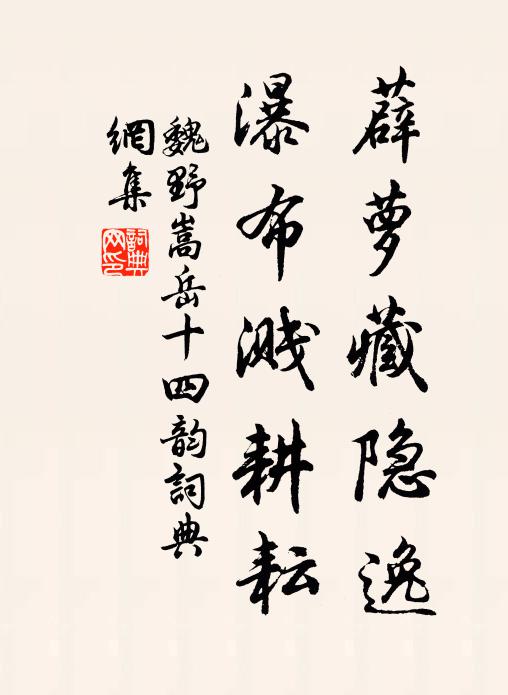 薜萝藏隐逸
瀑布溅耕耘
魏野嵩岳十四韵詞典
網集
詞典
网印